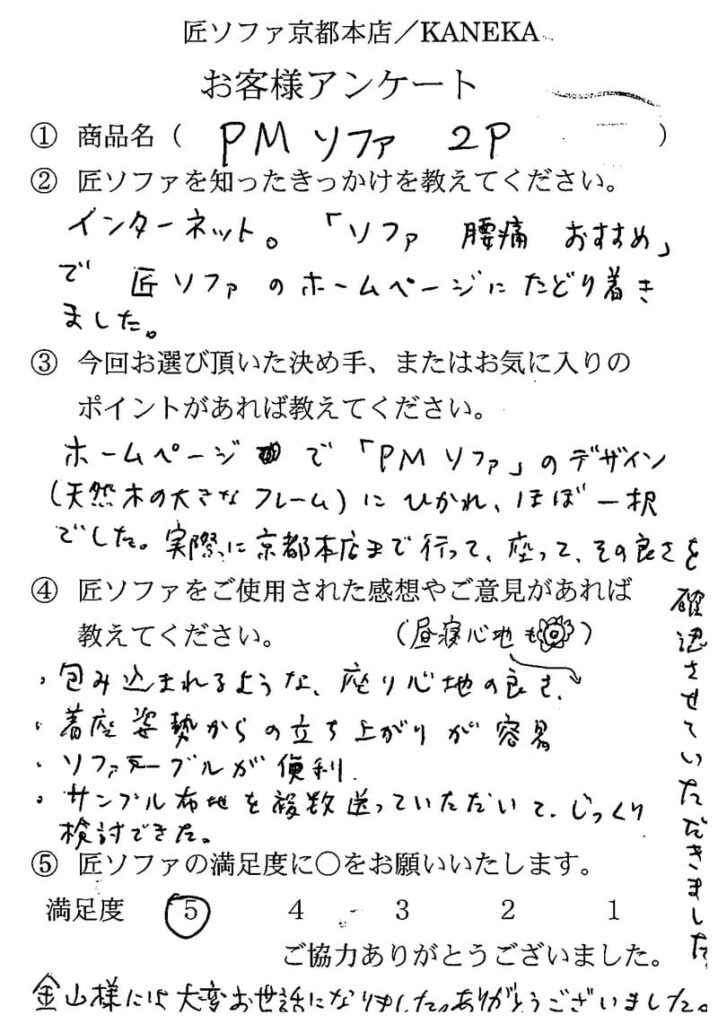 匠ソファ京都本店／KANEKA
お客様アンケート
① 商品名（ PM ソファ 2P ）
② 匠ソファを知ったきっかけを教えてください。
インターネット。「ソファ 腰痛 おすすめ」
で 匠ソファ のホームページにたどり着き
ました。
③ 今回お選び頂いた決め手、またはお気に入りの
ポイントがあれば教えてください。
ホームページ で「PM ソファ」のデザイン
(天然木の大きなフレーム) に ひかれ、ほぼ 一択
でした。実際に京都本店まで行って、座って、その良さを
確認させていただきました。
④ 匠ソファをご使用された感想やご意見があれば
教えてください。
(昼寝心地も)
・包み込まれるような、座り心地の良さ、
・着座姿勢からの立ち上がりが容易
・ソファテーブルが便利.
・サンプル布地を複数送っていただいて、じっくり
検討できた。
⑤ 匠ソファの満足度に○をお願いいたします。
満足度 5 4 3 2 1
ご協力ありがとうございました。
金山様には大変お世話になりました。ありがとうございました。